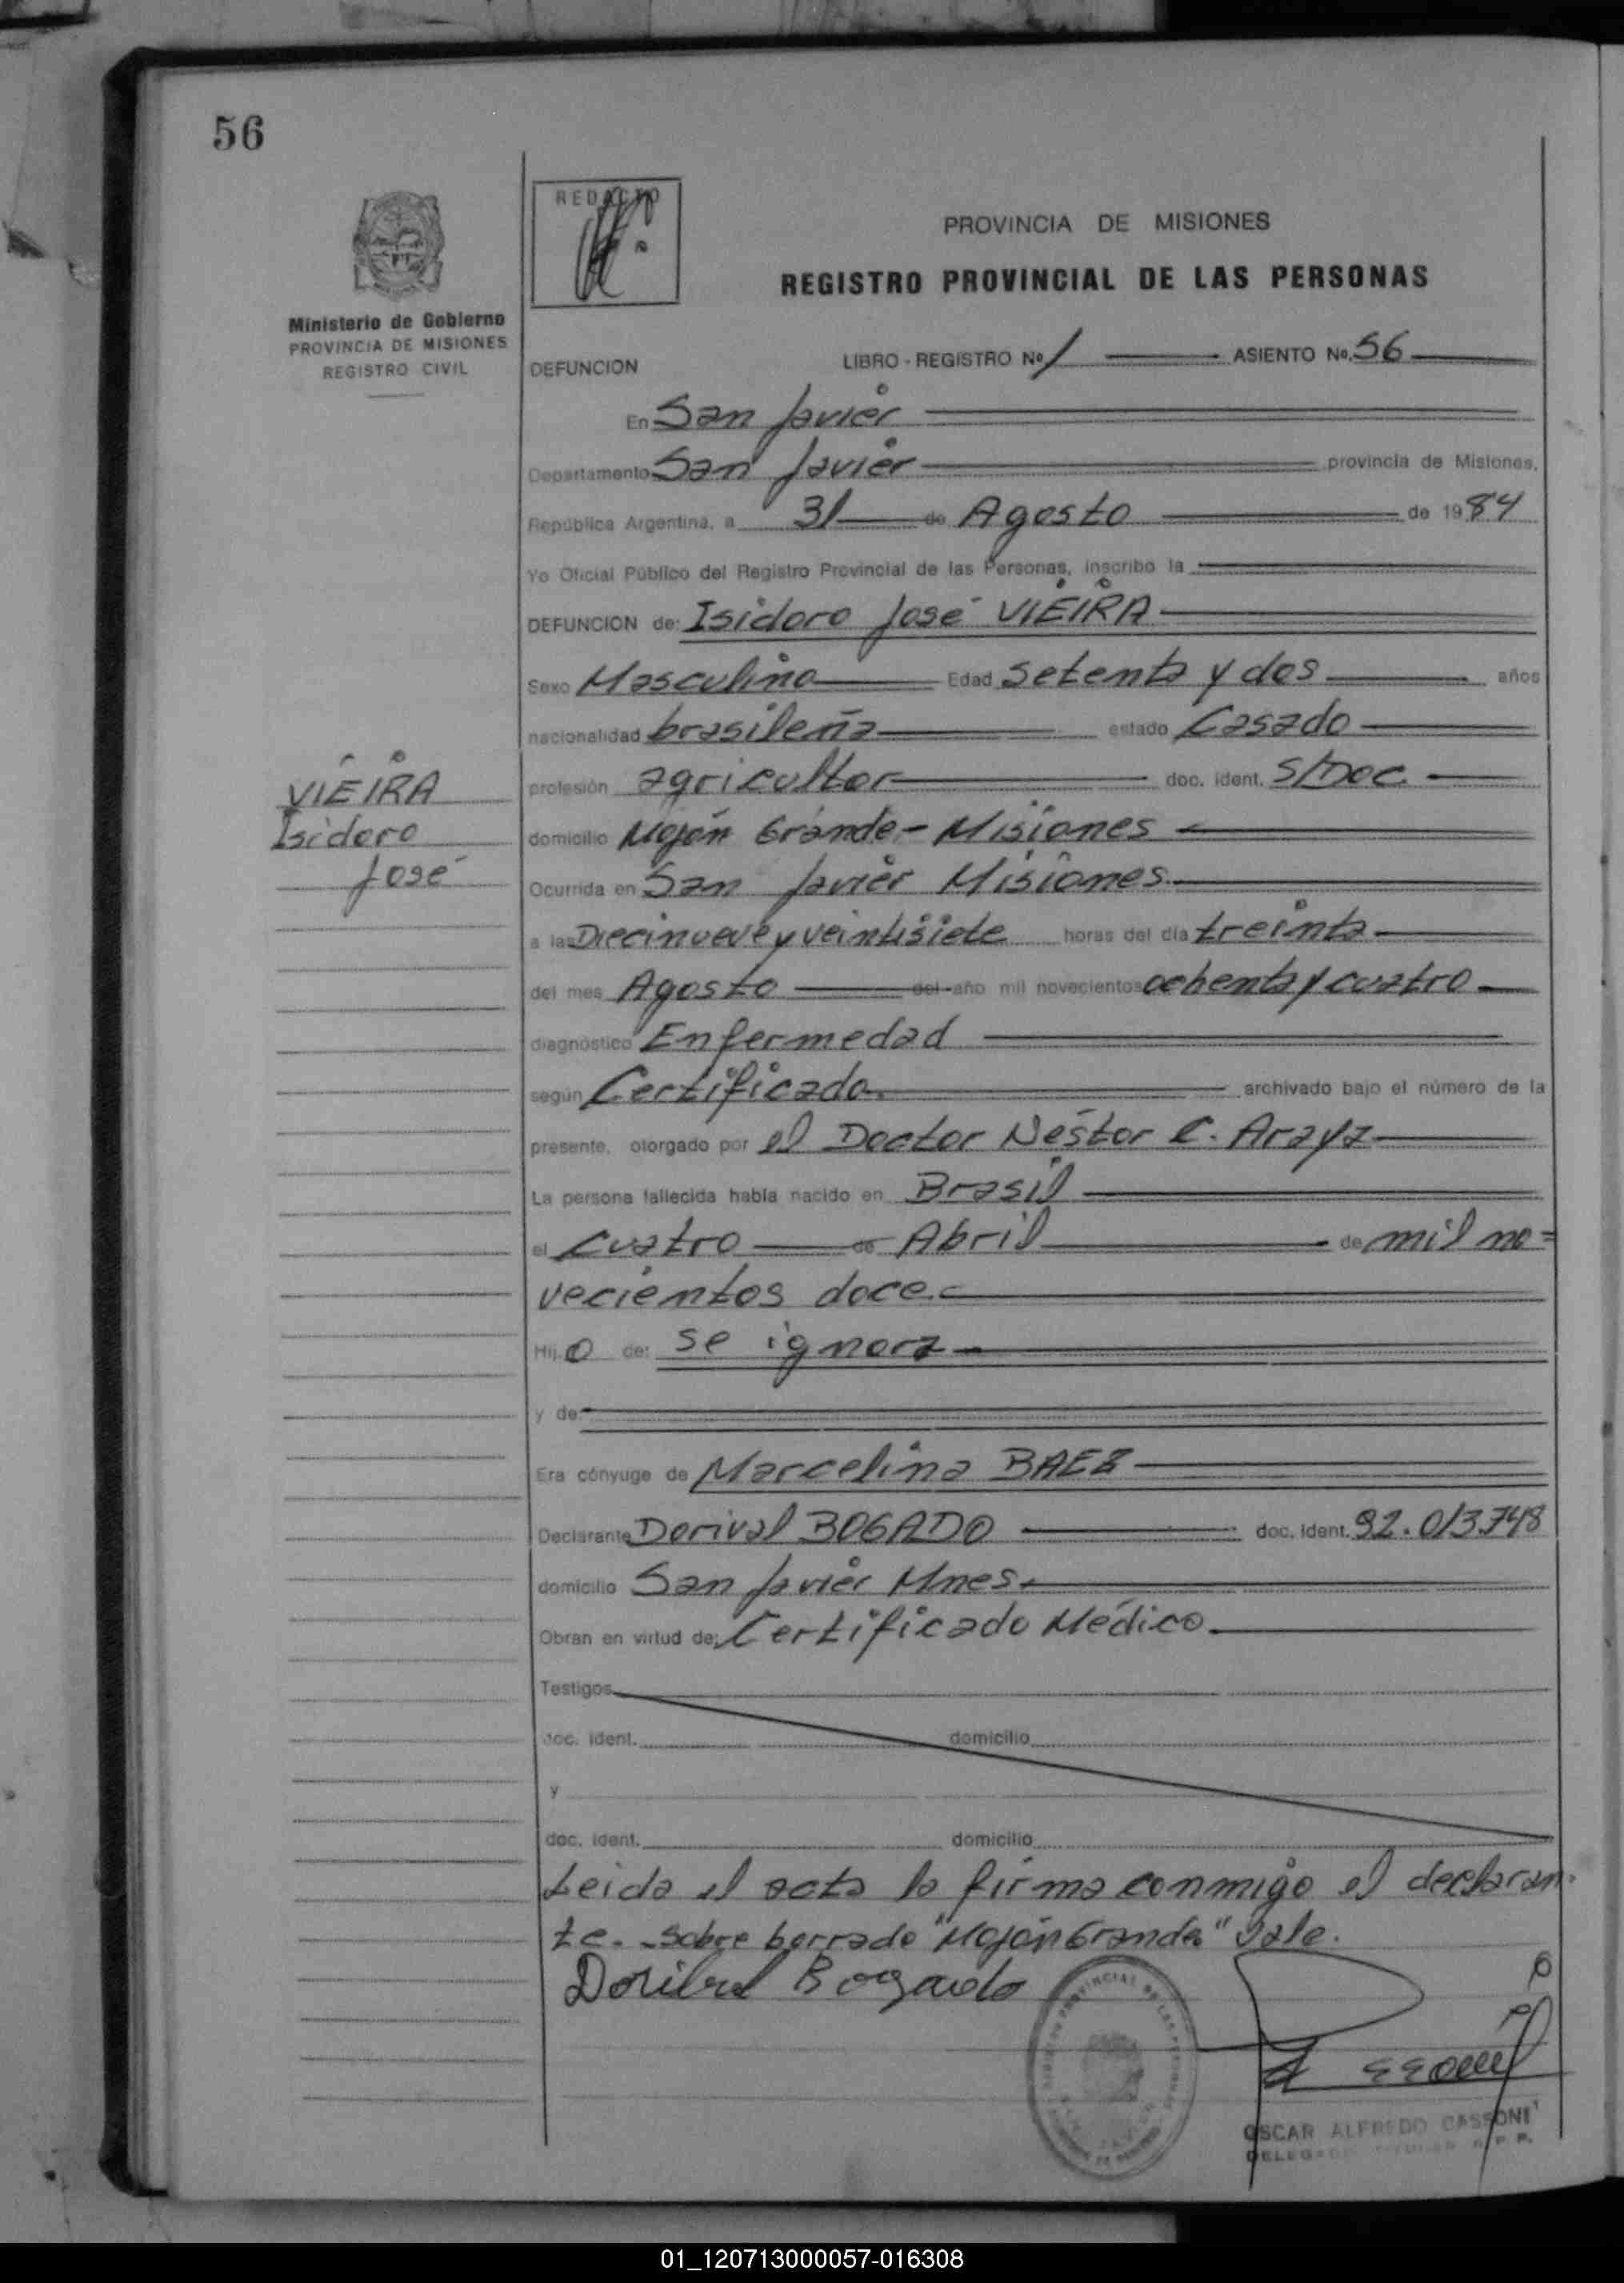 56
REDACTO
PROVINCIA DE MISIONES
REGISTRO PROVINCIAL DE LAS PERSONAS
Ministerio de Gobierno
PROVINCIA DE MISIONES
REGISTRO CIVIL
DEFUNCION LIBRO - REGISTRO Nº 1 ASIENTO No. 56
En San Javier
Departamento San Javier provincia de Misiones,
República Argentina, a 31 de Agosto de 1984
Yo Oficial Público del Registro Provincial de las Personas, inscribo la
DEFUNCION de: Isidoro José VIEIRA
Sexo Masculino Edad Setenta y dos años
nacionalidad brasileña estado Casado
VIEIRA
Isidoro
José
profesión agricultor doc. ident. S/Doc.
domicilio Mojón Grande - Misiones
Ocurrida en San Javier Misiones
a las Diecinueve y veintisiete horas del día treinta
del mes Agosto del año mil novecientos ochenta y cuatro
diagnóstico Enfermedad
según Certificado archivado bajo el número de la
presente, otorgado por el Doctor Néstor C. Araya
La persona fallecida había nacido en Brasil
el Cuatro de Abril de mil no=
vecientos doce.
Hijo de: se ignora
y de:
Era cónyuge de Marcelina BAEZ
Declarante Dorival BOGADO doc. ident. 92.013.748
domicilio San Javier Mnes.
Obran en virtud de: Certificado Médico
Testigos
doc. ident. domicilio
y
doc. ident. domicilio
Leida el acta la firma conmigo el declaran-
te. - Sobre borrado "Mojón Grande" Vale.
Doribal Bogado
OSCAR ALFREDO CASSONI
01_120713000057-016308